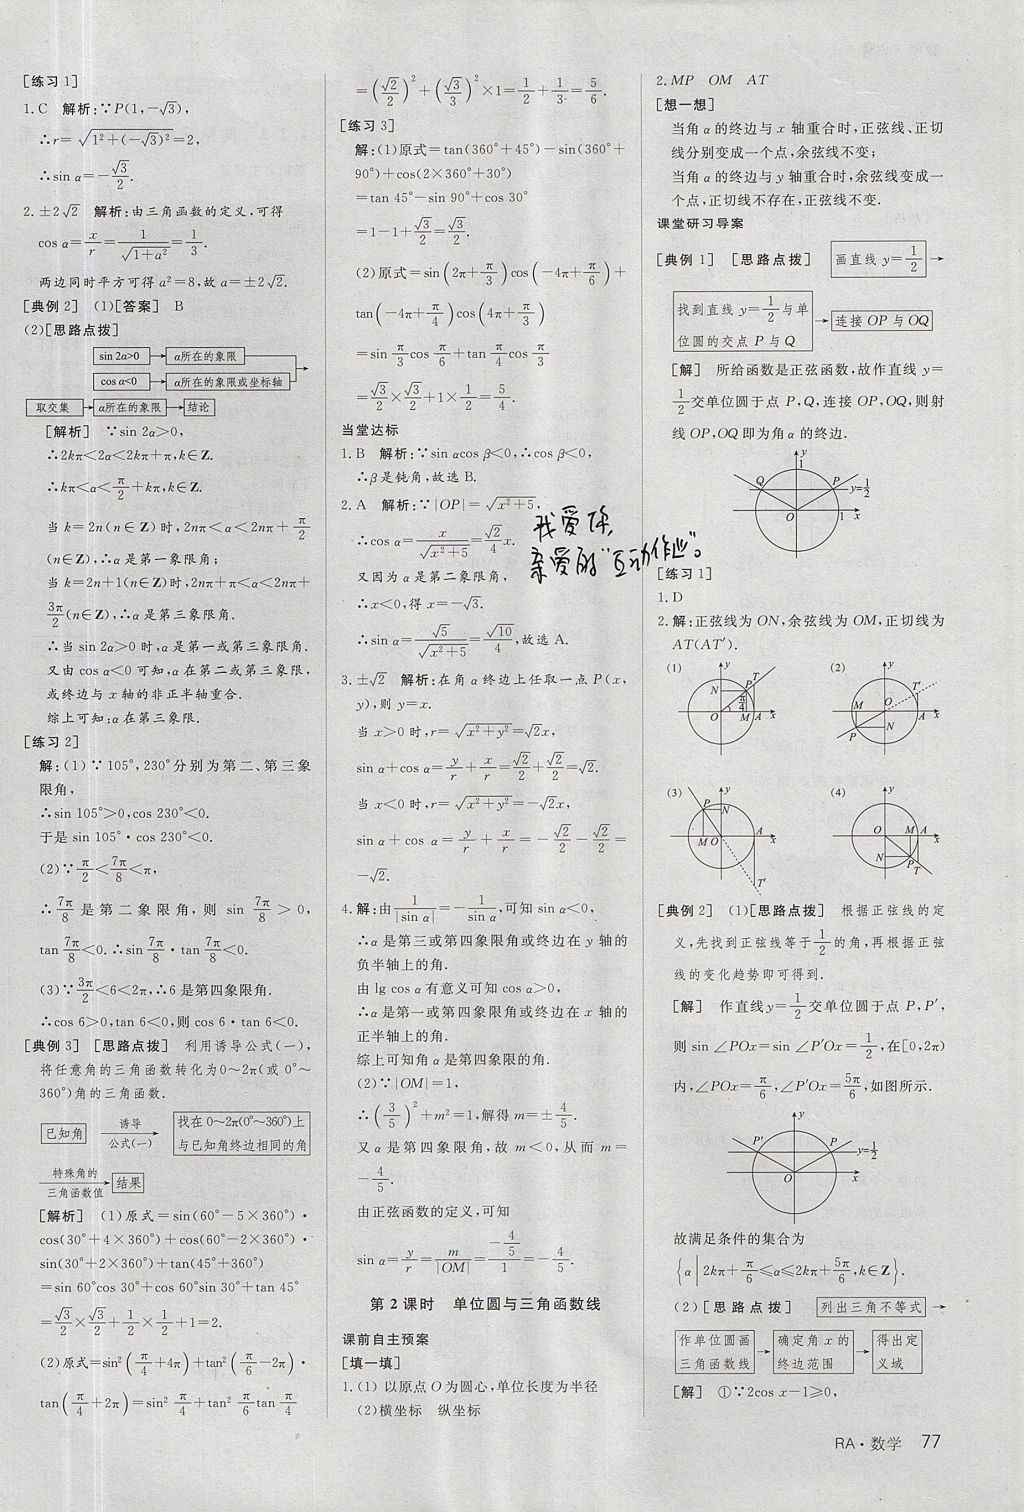 [练习1]
1.C 解析:∵P(1,-√3),
∴r=√(1²+(-√3)²)=2,
∴sin α=-√3/2.
2.±2√2 解析:由三角函数的定义,可得
cos α=x/r=1/√(1+a²)=1/3.
两边同时平方可得a²=8,故a=±2√2.
[典例2] (1)[答案] B
(2)[思路点拨]
sin 2α>0→α所在的象限
cos α<0→α所在的象限或坐标轴→
取交集→α所在的象限→结论
[解析] ∵sin 2α>0,
∴2kπ<2α<2kπ+π,k∈Z.
∴kπ<α<π/2+kπ,k∈Z.
当k=2n(n∈Z)时,2nπ<α<2nπ+π/2
(n∈Z),∴α是第一象限角;
当k=2n+1(n∈Z)时,2nπ+π<α<2nπ+
3π/2(n∈Z),∴α是第三象限角.
∴当sin 2α>0时,α是第一或第三象限角.
又由cos α<0可知,α在第二或第三象限,
或终边与x轴的非正半轴重合.
综上可知:α在第三象限.
[练习2]
解:(1)∵105°,230°分别为第二、第三象
限角,
∴sin 105°>0,cos 230°<0.
于是sin 105°·cos 230°<0.
(2)∵π/2<7π/8<π,
∴7π/8是第二象限角,则 sin 7π/8>0,
tan 7π/8<0.∴sin 7π/8·tan 7π/8<0.
(3)∵3π/2<6<2π,∴6是第四象限角.
∴cos 6>0,tan 6<0,则cos 6·tan 6<0.
[典例3] [思路点拨] 利用诱导公式(一),
将任意角的三角函数转化为0~2π(或0°~
360°)角的三角函数.
已知角 诱导公式(一)→ 找在0~2π(0°~360°)上
与已知角终边相同的角
特殊角的三角函数值→ 结果
[解析] (1)原式=sin(60°-5×360°)·
cos(30°+4×360°)+cos(60°-2×360°)·
sin(30°+2×360°)+tan(45°+360°)
=sin 60°cos 30°+cos 60°sin 30°+tan 45°
=√3/2×√3/2+1/2×1/2+1=2.
(2)原式=sin²(π/4+4π)+tan²(π/6-2π)·
tan(π/4+2π)=sin² π/4+tan² π/6 tan π/4
=(√2/2)²+(√3/3)²×1=1/2+1/3=5/6.
[练习3]
解:(1)原式=tan(360°+45°)-sin(360°+
90°)+cos(2×360°+30°)
=tan 45°-sin 90°+cos 30°
=1-1+√3/2=√3/2.
(2)原式=sin(2π+π/3)cos(-4π+π/6)+
tan(-4π+π/4)cos(4π+π/3)
=sin π/3 cos π/6+tan π/4 cos π/3
=√3/2×√3/2+1×1/2=5/4.
当堂达标
1.B 解析:∵sin αcos β<0,∴cos β<0,
∴β是钝角,故选B.
2.A 解析:∵|OP|=√(x²+5),
∴cos α=x/√(x²+5)=√2/4 x.
又因为α是第二象限角,
∴x<0,得x=-√3.
∴sin α=√5/√(x²+5)=√10/4,故选A.
3.±√2 解析:在角α终边上任取一点P(x,
y),则y=x.
当x>0时,r=√(x²+y²)=√2x,
sin α+cos α=y/r+x/r=√2/2+√2/2=√2.
当x<0时,r=√(x²+y²)=-√2x,
sin α+cos α=y/r+x/r=-√2/2-√2/2=
-√2.
4.解:由1/|sin α|=-1/sin α,可知sin α<0,
∴α是第三或第四象限角或终边在y轴的
负半轴上的角.
由lg cos α有意义可知cos α>0,
∴α是第一或第四象限角或终边在x轴的
正半轴上的角.
综上可知角α是第四象限的角.
(2)∵|OM|=1,
∴(3/5)²+m²=1,解得m=±4/5.
又α是第四象限角,故m<0,从而m=
-4/5.
由正弦函数的定义,可知
sin α=y/r=m/|OM|=(-4/5)/1=-4/5.
第2课时 单位圆与三角函数线
课前自主预案
[填一填]
1.(1)以原点O为圆心,单位长度为半径
(2)横坐标 纵坐标
我爱你,
亲爱的"互动作业"。
2.MP OM AT
[想一想]
当角α的终边与x轴重合时,正弦线、正切
线分别变成一个点,余弦线不变;
当角α的终边与y轴重合时,余弦线变成一
个点,正切线不存在,正弦线不变.
课堂研习导案
[典例1] [思路点拨] 画直线y=1/2→
找到直线y=1/2与单
位圆的交点P与Q→连接OP与OQ
[解] 所给函数是正弦函数,故作直线y=
1/2交单位圆于点P,Q,连接OP,OQ,则射
线OP,OQ即为角α的终边.
y 1 Q P y=1/2 O 1 x
[练习1]
1.D
2.解:正弦线为ON,余弦线为OM,正切线为
AT(AT′).
(1) y N P T π/4 O M A x
(2) y T′ M O A x P N
(3) y P N M O A x T′
(4) y O M A x N P T
[典例2] (1)[思路点拨] 根据正弦线的定
义,先找到正弦线等于1/2的角,再根据正弦
线的变化趋势即可得到.
[解] 作直线y=1/2交单位圆于点P,P′,
则sin∠POx=sin∠P′Ox=1/2,在[0,2π)
内,∠POx=π/6,∠P′Ox=5π/6,如图所示.
y P′ P y=1/2 O x
故满足条件的集合为
{α|2kπ+π/6≤α≤2kπ+5π/6,k∈Z}.
(2)[思路点拨] 列出三角不等式→
作单位圆画三角函数线→确定角x的终边范围→得出定义域
[解] ①∵2cos x-1≥0,
RA·数学 77